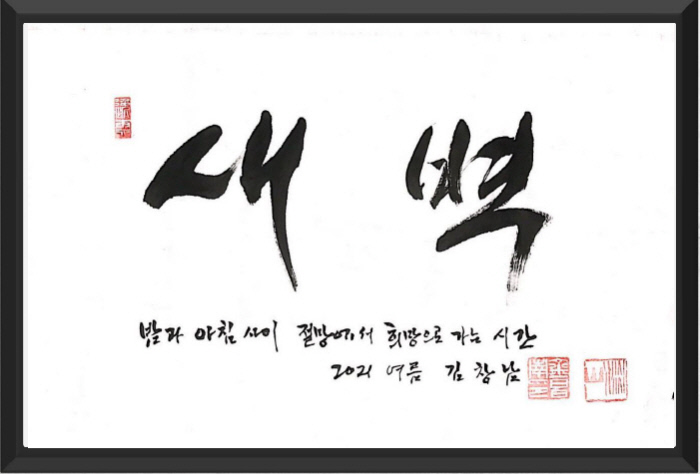 새벽
밤과 아침 사이 절망에서 희망으로 가는 시간
2021 여름 김창남